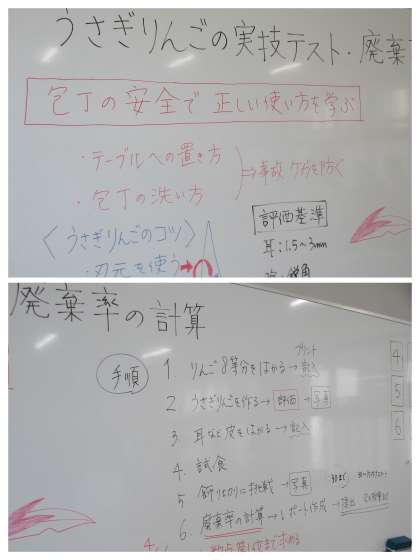 うさぎりんごの実技テスト・廃棄
包丁の安全で正しい使い方を学ぶ
・テーブルへの置き方
・包丁の洗い方
⇒事故ケガを防ぐ
〈うさぎりんごのコツ〉
・刃元を使う
評価基準
耳:1.5~3mm
鋭角
廃棄率の計算
手順
プリント
1 りんご8等分をはかる→記入
2 うさぎりんごを作る→評価→写真
3 耳など皮をはかる→記入
4. 試食
5 飾り切りに挑戦→写真
6. 廃棄率の計算→レポート作成→提出
4
5
6